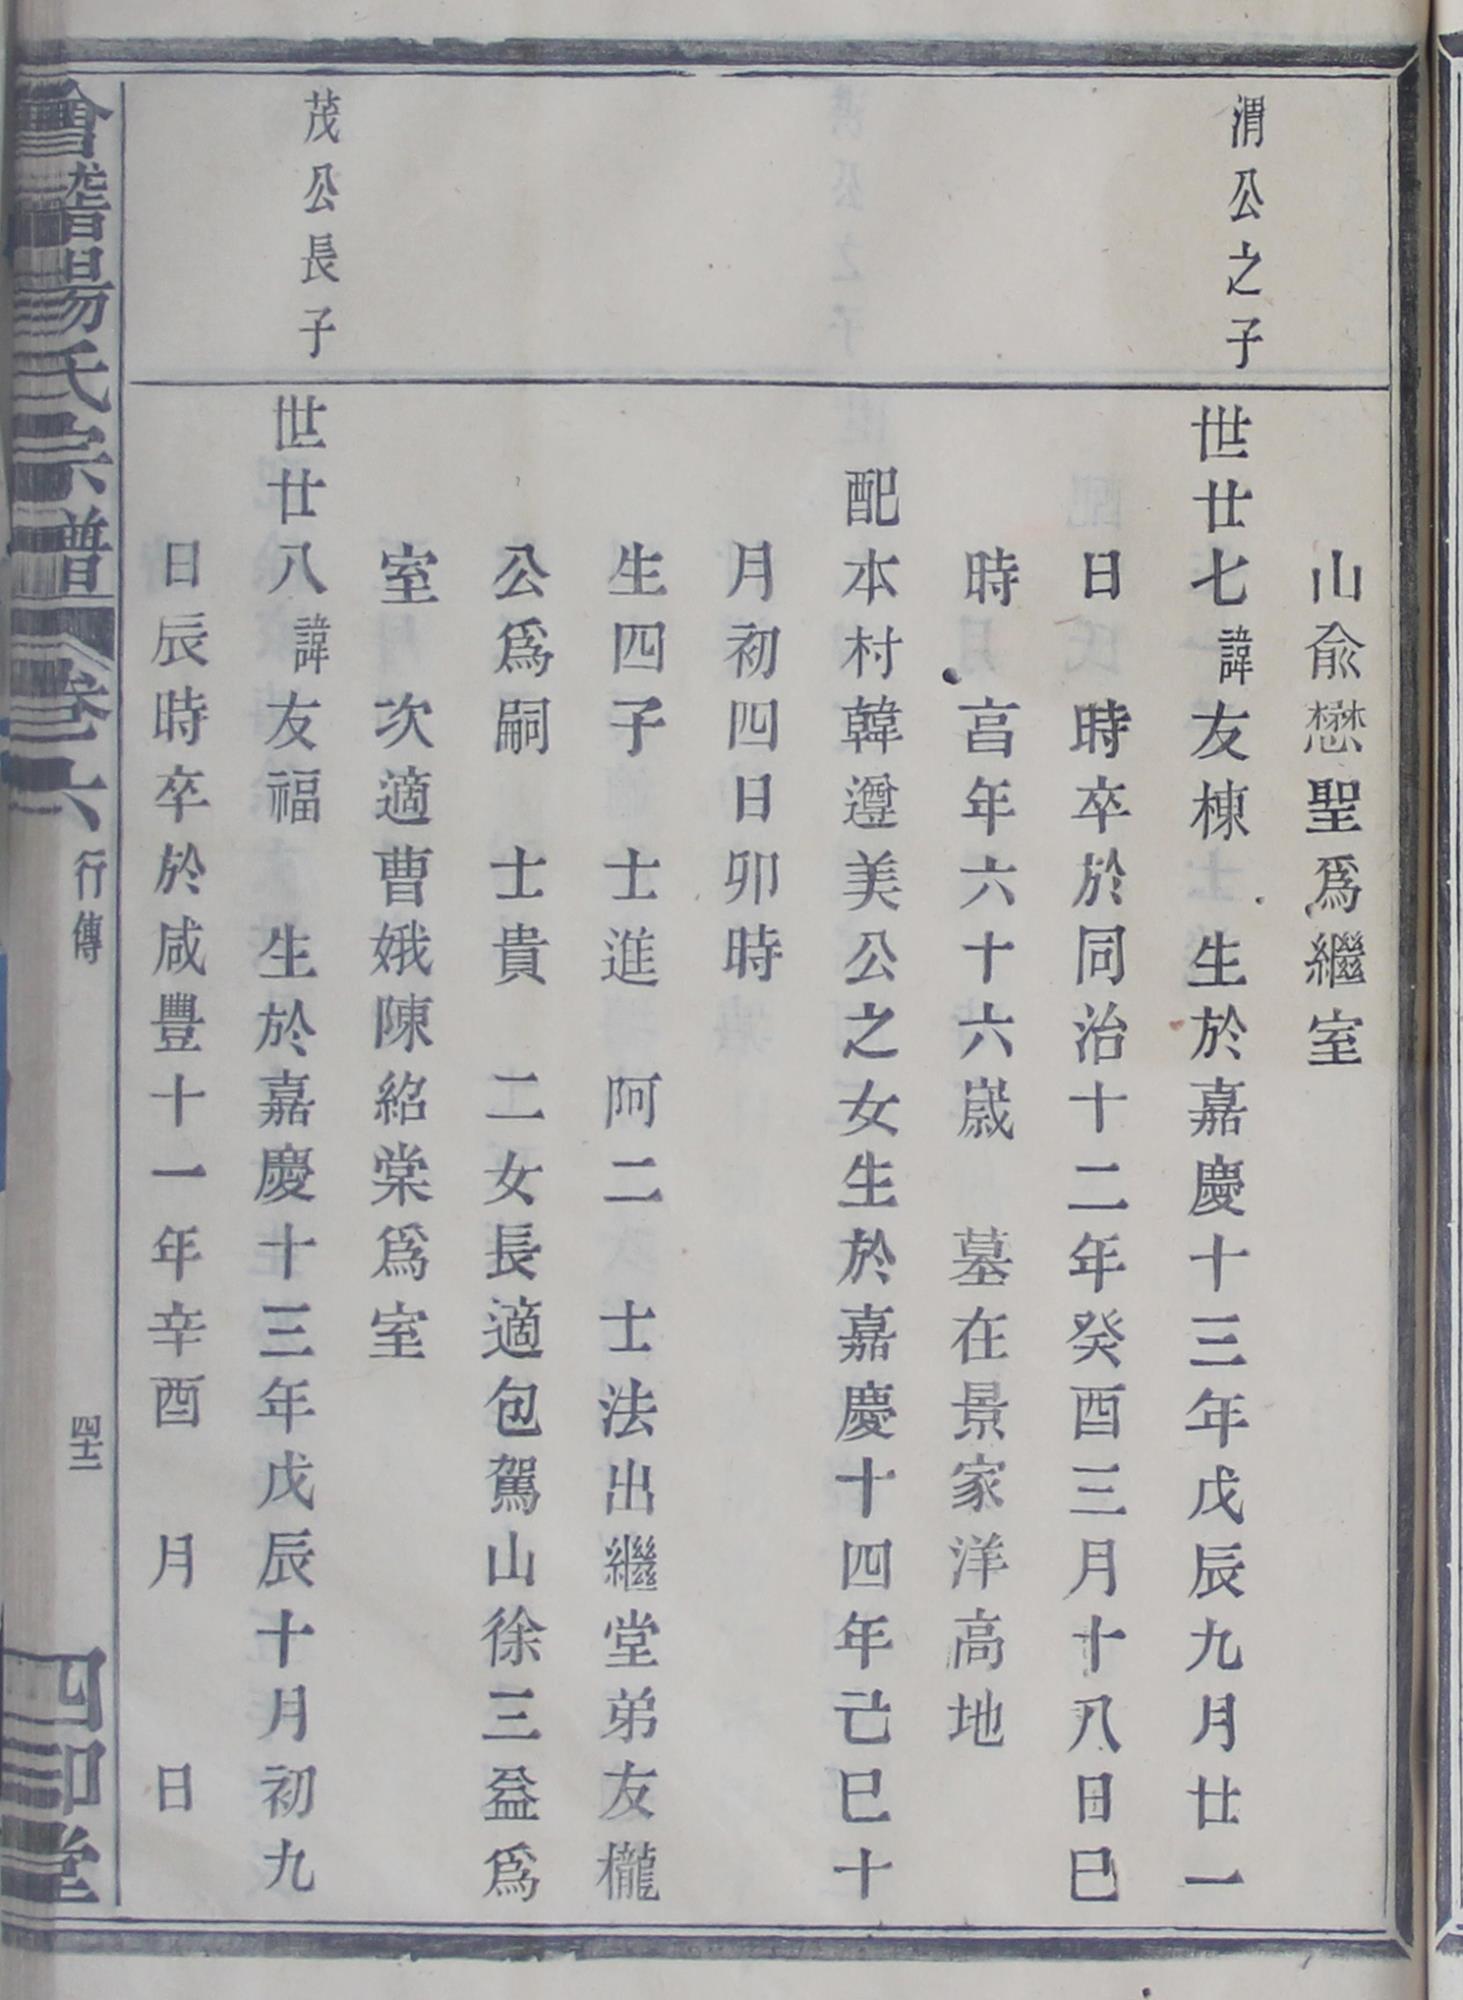 山兪懋聖爲繼室
渭公之子
世廿七諱友棟 生於嘉慶十三年戊辰九月廿一
日 時卒於同治十二年癸酉三月十八日巳
時 亯年六十六嵗 墓在景家洋高地
配本村韓遵美公之女生於嘉慶十四年己巳十
月初四日卯時
生四子 士進 阿二 士法出繼堂弟友櫳
公爲嗣 士貴 二女長適包駕山徐三益爲
室 次適曹娥陳紹棠爲室
茂公長子
世廿八諱友福 生於嘉慶十三年戊辰十月初九
日辰時卒於咸豐十一年辛酉 月 日
會稽昜氏宗譜 卷六 行傳 四十二 四印堂